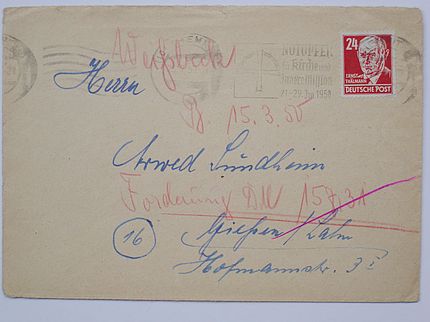 NOTOPFER
für Kirche und
Innere Mission
21.-29. Jan 1950
24
ERNST
THÄLMANN
DEUTSCHE POST
Herrn
15.3.50
Arwed Sundheim
Forderung DM 157,31
16
Gießen/Lahn
Hofmannstr. 3 I